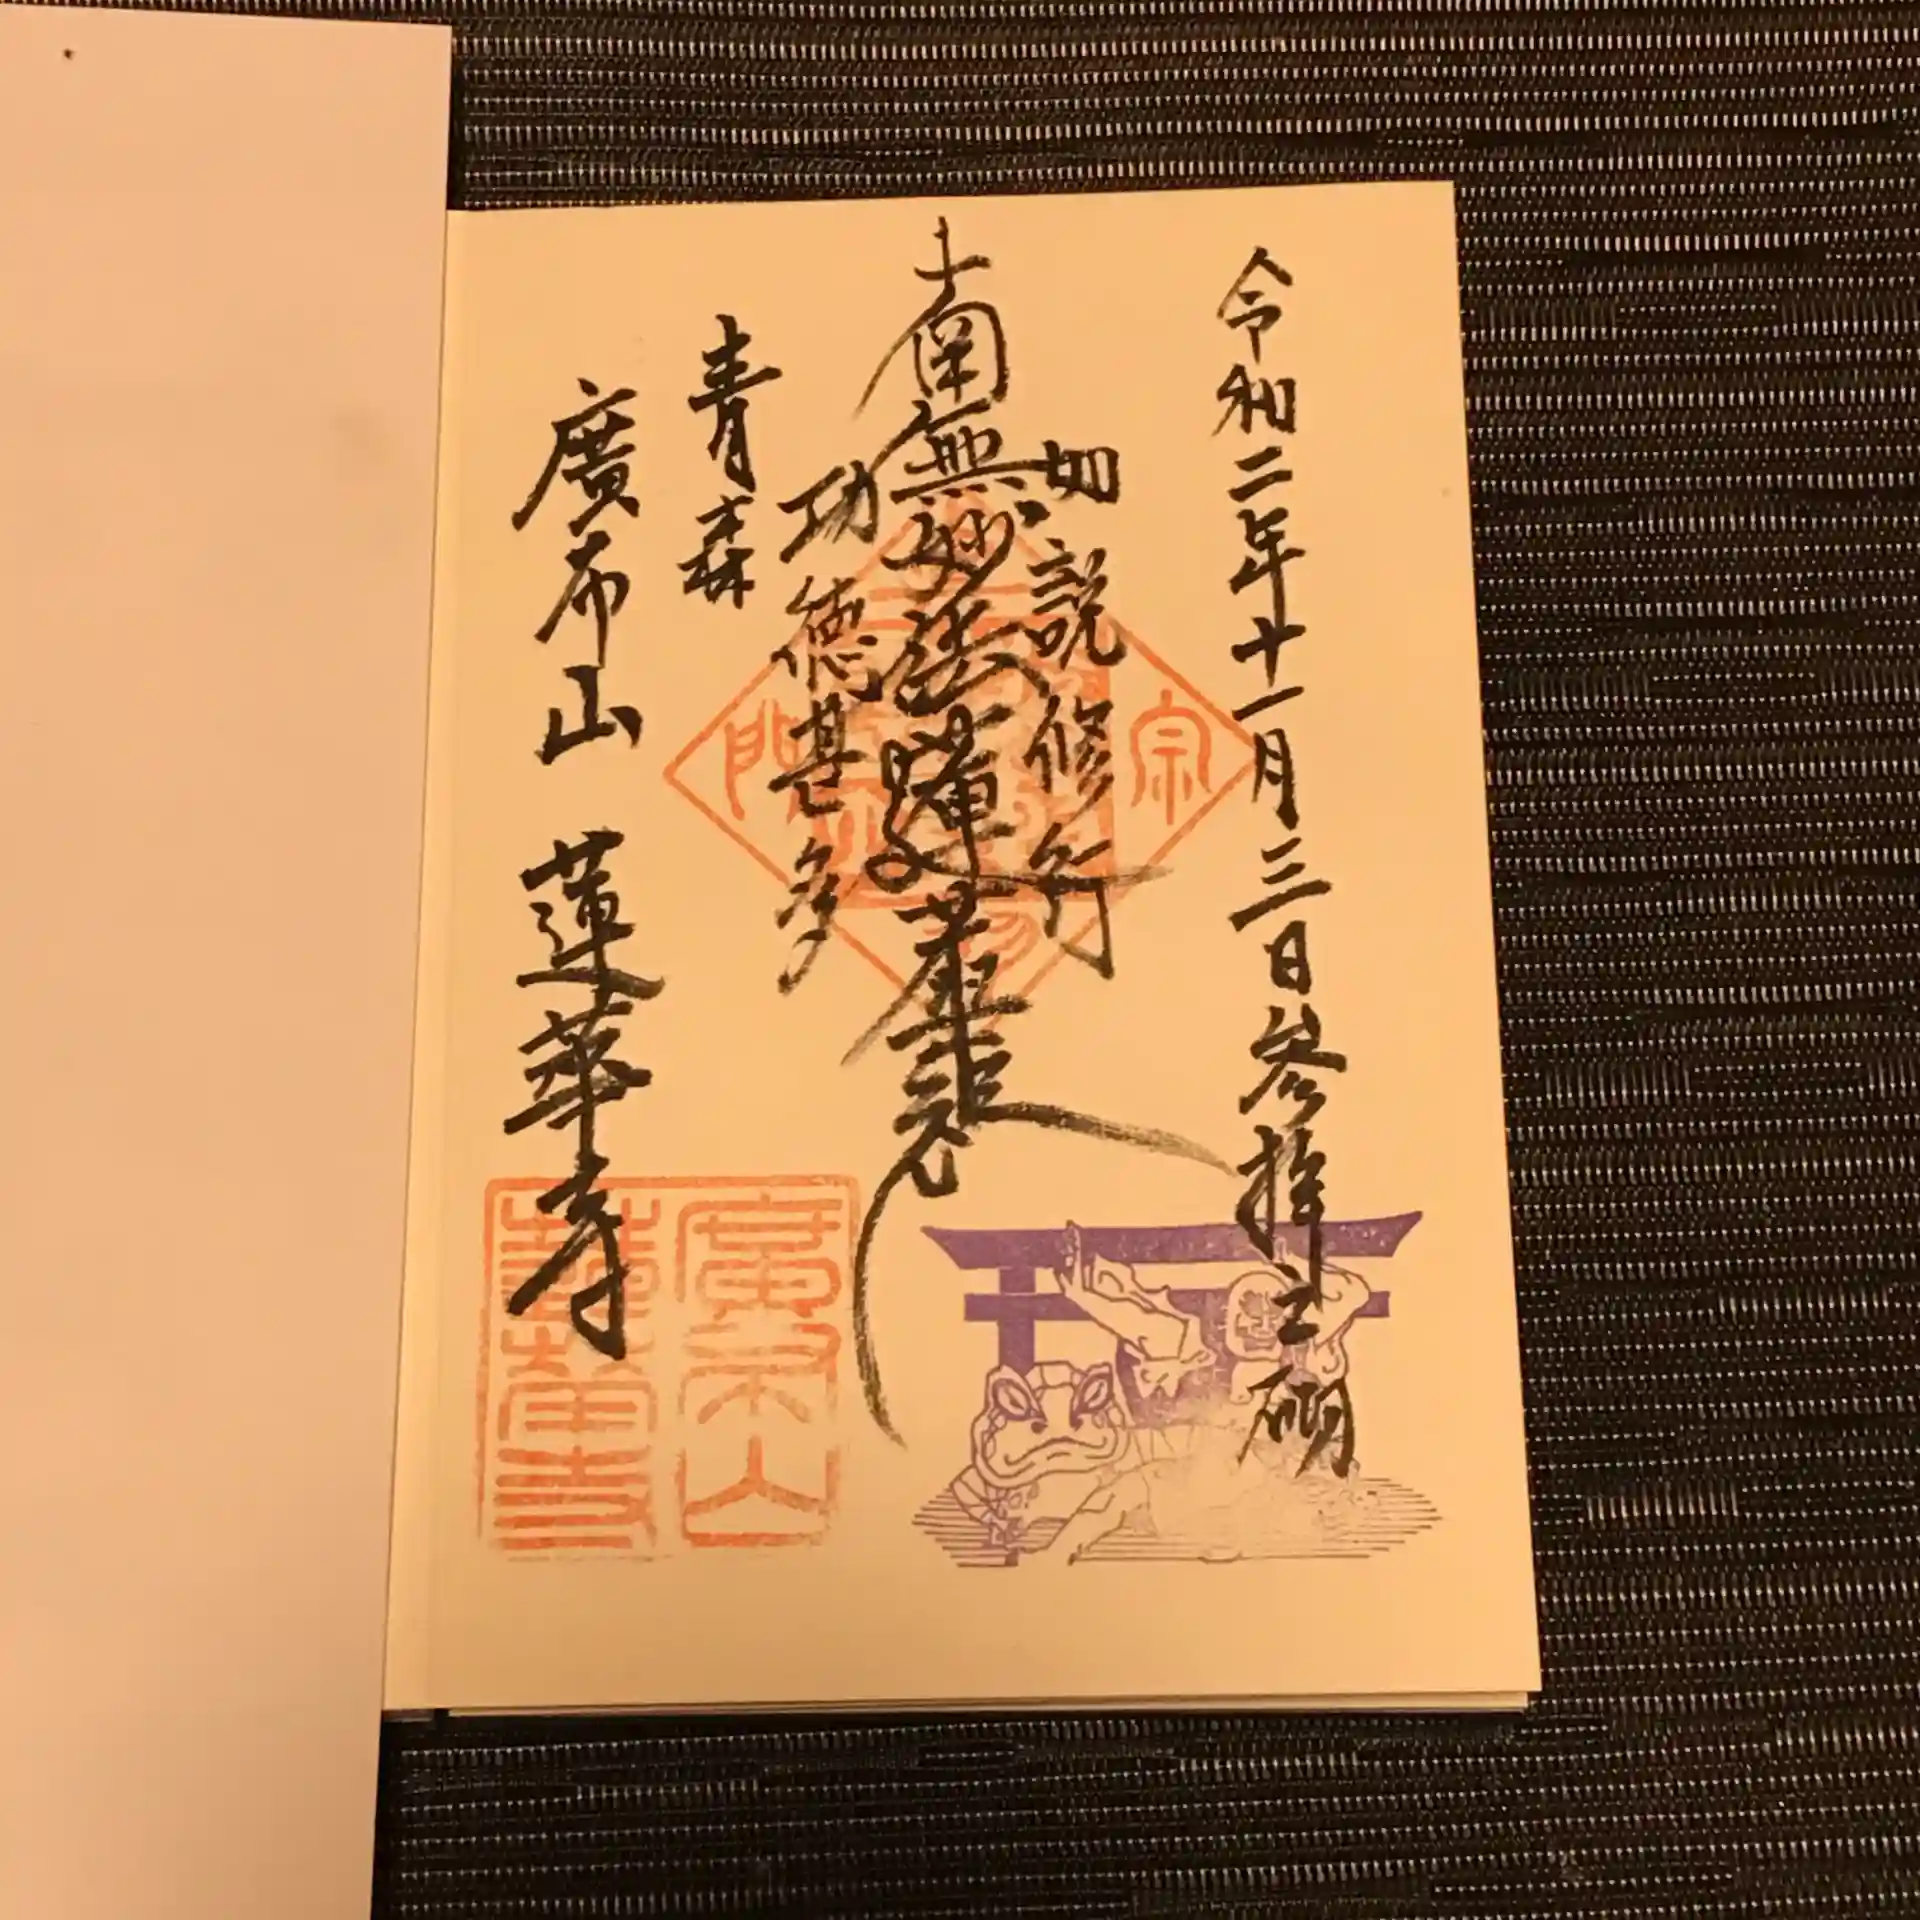 令和二年十一月三日参拝之砌
如説修行
南無妙法蓮華経
功徳甚多
青森
廣布山 蓮華寺
宗
廣布山
蓮華寺